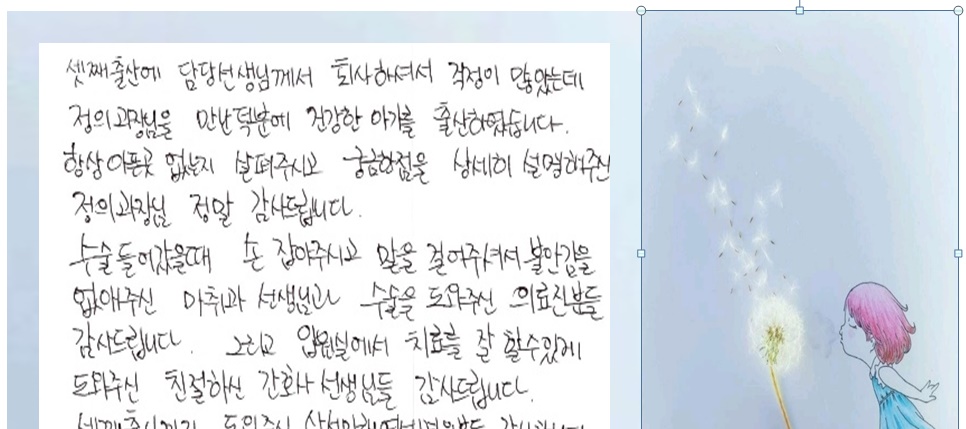 셋째출산에 담당선생님께서 퇴사하셔서 걱정이 많았는데
정의과장님을 만난덕분에 건강한 아기를 출산하였습니다.
항상아픈곳 없는지 살펴주시고 궁금한점을 상세히 설명해주신
정의과장님 정말 감사드립니다.
수술들어갔을때 손 잡아주시고 말을 걸어주셔서 불안감을
없애주신 마취과 선생님과 수술을 도와주신 의료진분들
감사드립니다. 그리고 입원실에서 치료를 잘 할수있게
도와주신 친절하신 간호사 선생님들 감사드립니다.